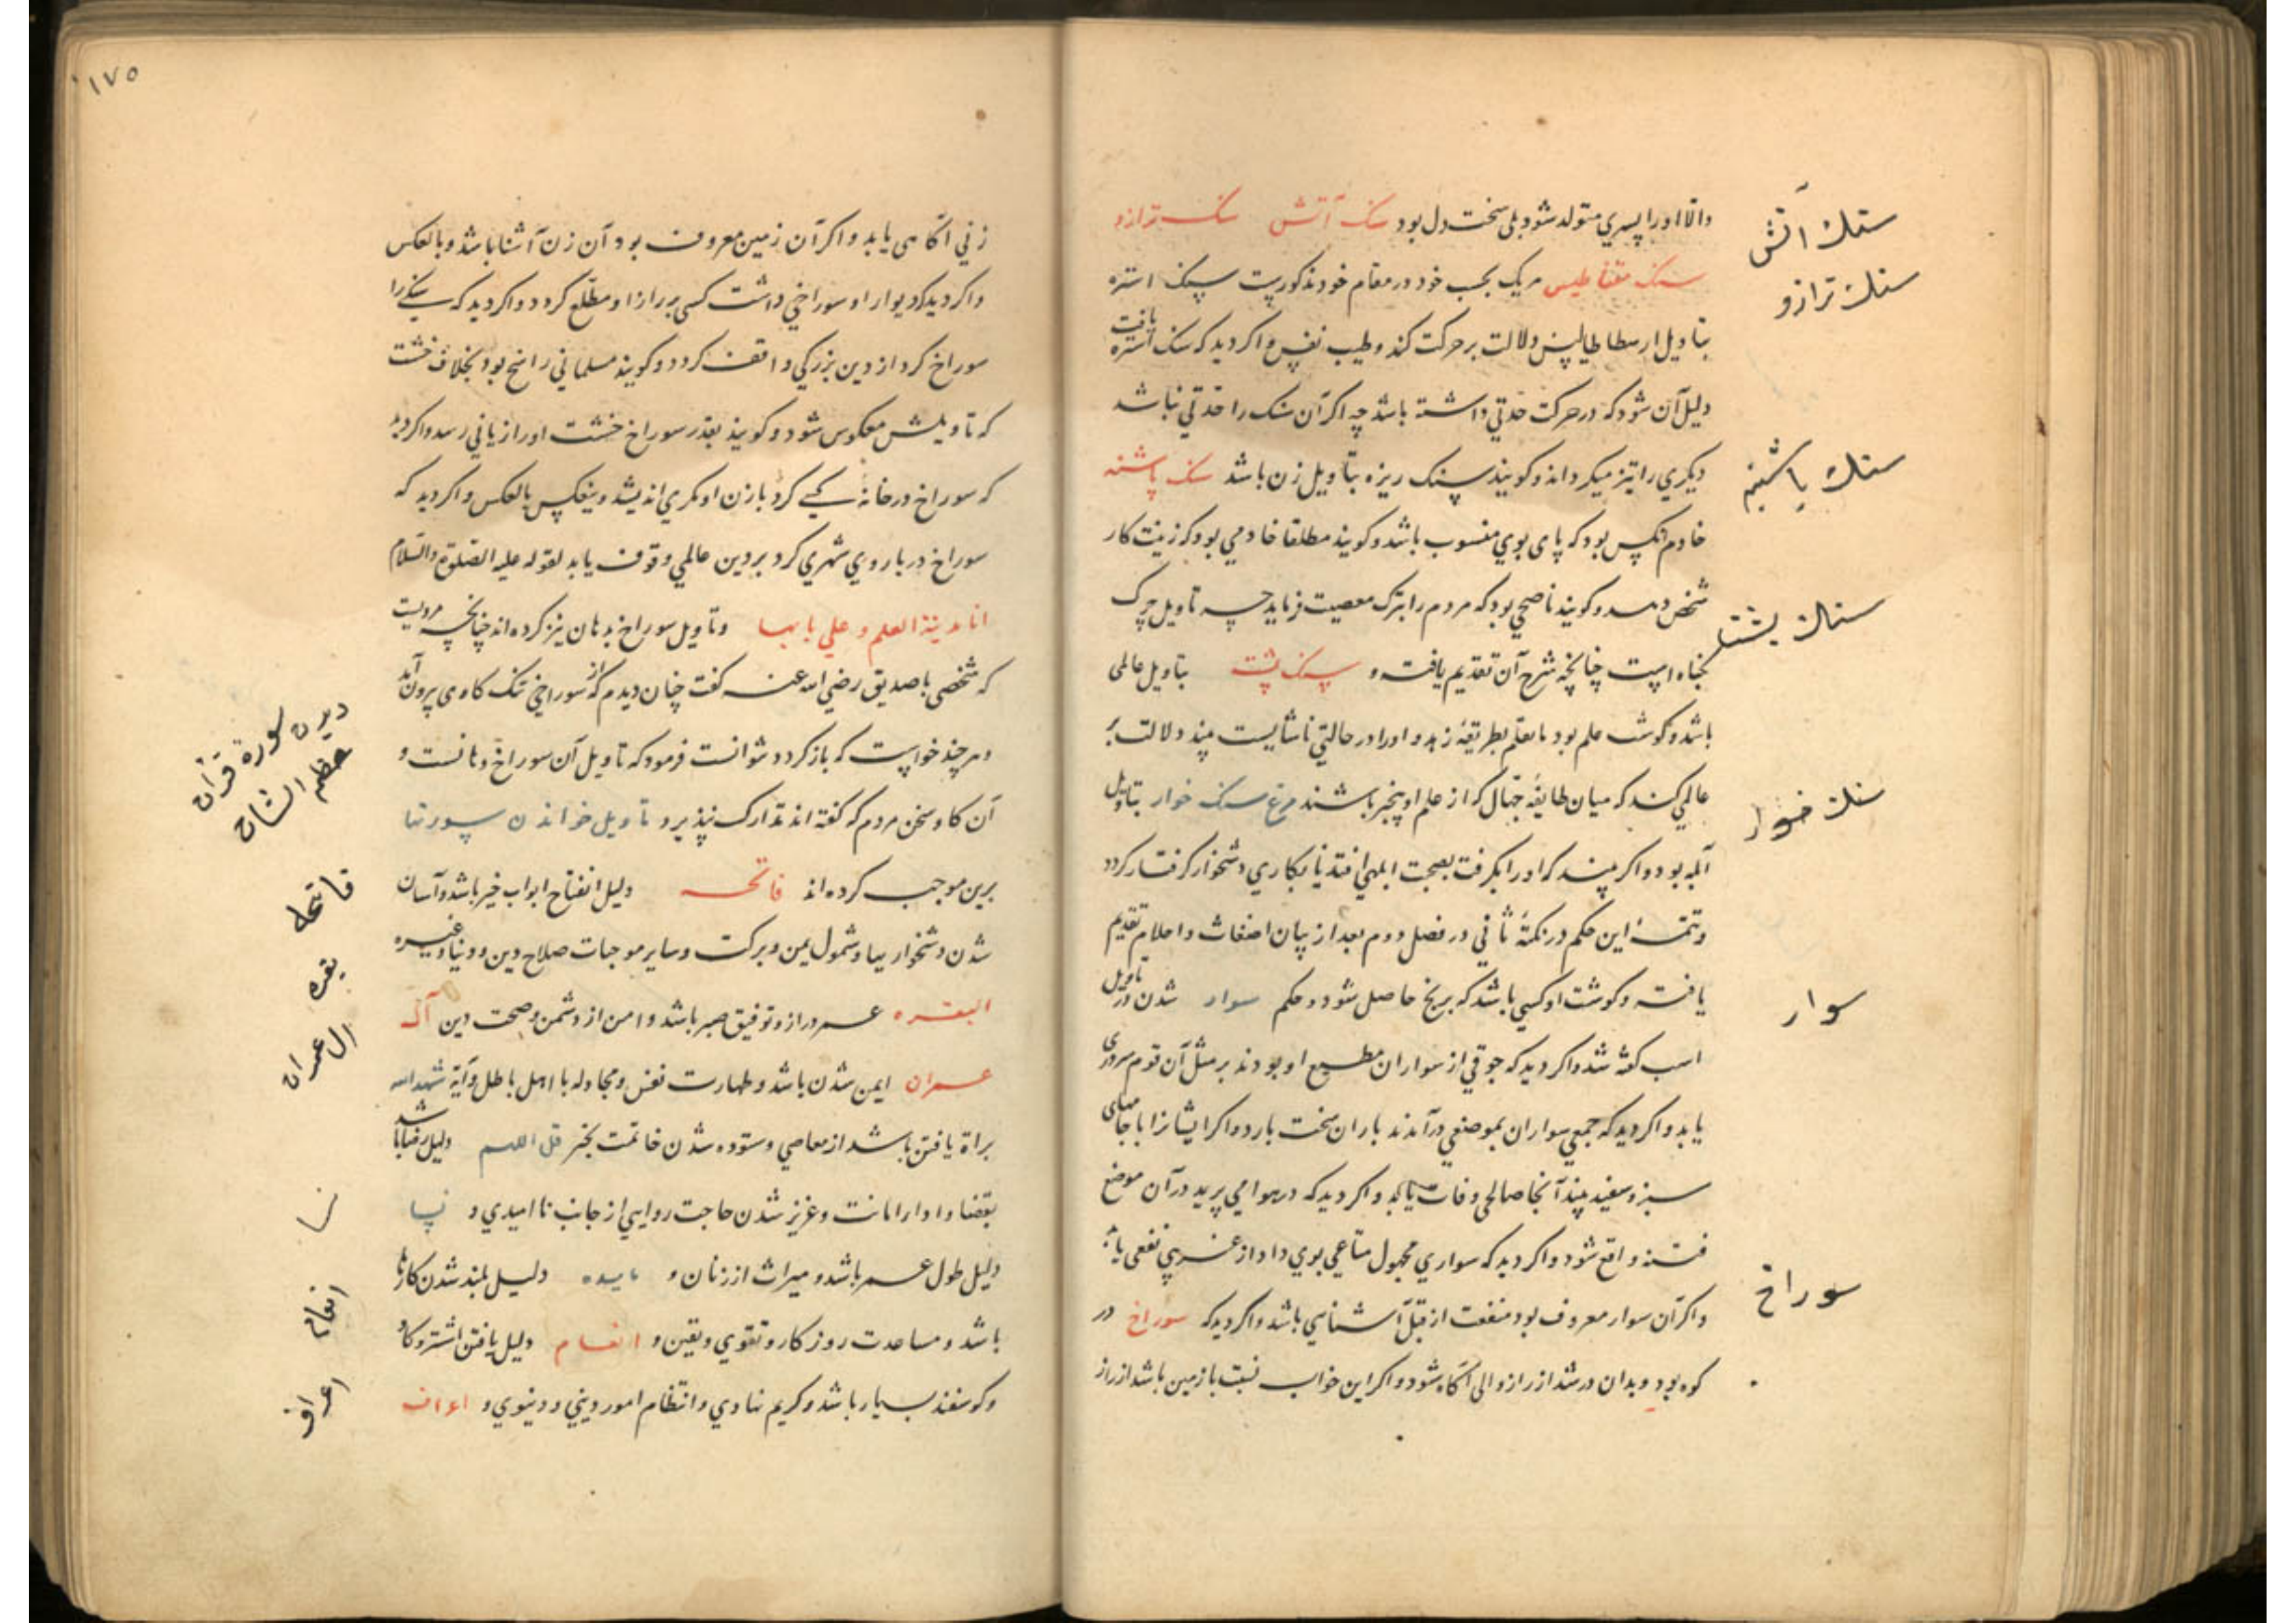 والّا او را پسري متولد شود ولي سخت دل بود سنك آتش سنك ترازو
سنك مقناطيس هريك بحسب خود در مقام خود مذكورست سنك استره
بتاويل ارسطاطاليس دلالت بر حركت كند وطيب نفس واكر ديد كه سنك استره يافت
دليل آن شود كه در حركت حدتي داشته باشد چه اكر آن سنك را حدتي نباشد
ديكري را تيز ميكرداند وكويند سنك ريزه بتاويل زن باشد سنك پاشنه
خادم انكس بود كه پاى بوي منسوب باشد وكويند مطلقا خادمي بود كه زينت كار
شخص دهد وكويند ناصحي بود كه مردم را بترك معصيت فرمايد چه تاويل چرك
كناه است چنانچه شرح آن تقديم يافت و سنك پشت بتاويل عالمى
باشد وكوشت علم بود يا تعلم بطريقۀ زهد و او را در حالتي ناشايست بيند دلالت بر
عالمي كند كه ميان طايفۀ جهال كه از علم او بيخبر باشند مرغ سنك خوار بتاويل
ابله بود واكر بيند كه او را بكرفت بصحبت ابلهي افتد يا بكاري دشخوار كرفتار كردد
وتتمۀ اين حكم در نكتۀ ثاني در فصل دوم بعد از بيان اضغاث واحلام تقديم
يافت وكوشت او كسبي باشد كه برنج حاصل شود وحكم سوار شدن در تاويل
اسب كفته شد واكر ديد كه جوقي از سواران مطيع او بودند بر مثل آن قوم سرورى
يابد واكر ديد كه جمعي سواران بموضعي درآمدند باران سخت بارد واكر ايشانرا با جامهاى
سبز وسفيد بيند آنجا صالحى وفات يابد واكر ديد كه در هوا مي پريد در آن موضع
فتنه واقع شود واكر ديد كه سواري مجهول متاعي بوي داد از غريبي نفعى يابد
واكر آن سوار معروف بود منفعت از قبل آشنايي باشد واكر ديد كه سوراخ در
كوه بود وبدان در شد از راز والى آكاه شود واكر اين خواب نسبت با زمين باشد از راز
سنك آتش
سنك ترازو
سنك پاشنه
سنك پشت
سنك خوار
سوار
سوراخ
١٧٥
زني آكاهى يابد واكر آن زمين معروف بود آن زن آشنا باشد وبالعكس
واكر ديد كه ديوار او سوراخي داشت كسى بر راز او مطلع كردد واكر ديد كه سنكى را
سوراخ كرد از دين بزركي واقف كردد وكويند مسلماني راسخ بود بخلاف خشت
كه تاويلش معكوس شود وكويند بقدر سوراخ خشت او را زياني رسد واكر ديد
كه سوراخ در خانۀ كسى كرد با زن او مكري انديشد وينعكس بالعكس واكر ديد كه
سوراخ در باروي شهري كرد بر دين عالمي وقوف يابد لقوله عليه الصلوة والسلام
انا مدينة العلم وعلي بابها وتاويل سوراخ بدهان نيز كرده اند چنانچه مرويست
كه شخصى با صديق رضي الله عنه كفت چنان ديدم كه از سوراخي تنك كاوى بيرون آمد
وهرچند خواست كه باز كردد نتوانست فرمود كه تاويل آن سوراخ دهانست و
آن كاو سخن مردم كه كفته اند تدارك نپذيرد تاويل خواندن سورتها
برين موجب كرده اند فاتحه دليل انفتاح ابواب خير باشد وآسان
شدن دشخواريها وشمول يمن وبركت وساير موجبات صلاح دين ودنيا وغيره
البقره عمر دراز وتوفيق صبر باشد وامن از دشمن وصحت دين آل
عمران ايمن شدن باشد وطهارت نفس ومجادله با اهل باطل وآيۀ شهد الله
براة يافتن باشد از معاصي وستوده شدن خاتمت بخير قل اللهم دليل رضا باشد
بقضا وادا امانت وعزيز شدن حاجت روايي از جانب نااميدي و نسا
دليل طول عمر باشد وميراث از زنان و مايده دليل بلند شدن كارها
باشد ومساعدت روزكار وتقوي ويقين و انعام دليل يافتن اشتر وكاو
وكوسفند بسيار باشد وكريم نهادي وانتظام امور ديني ودنيوي و اعراف
ديدن سورۀ قرآن
عظم الشان
فاتحه
بقره
ال عمران
نسا
انعام
اعراف